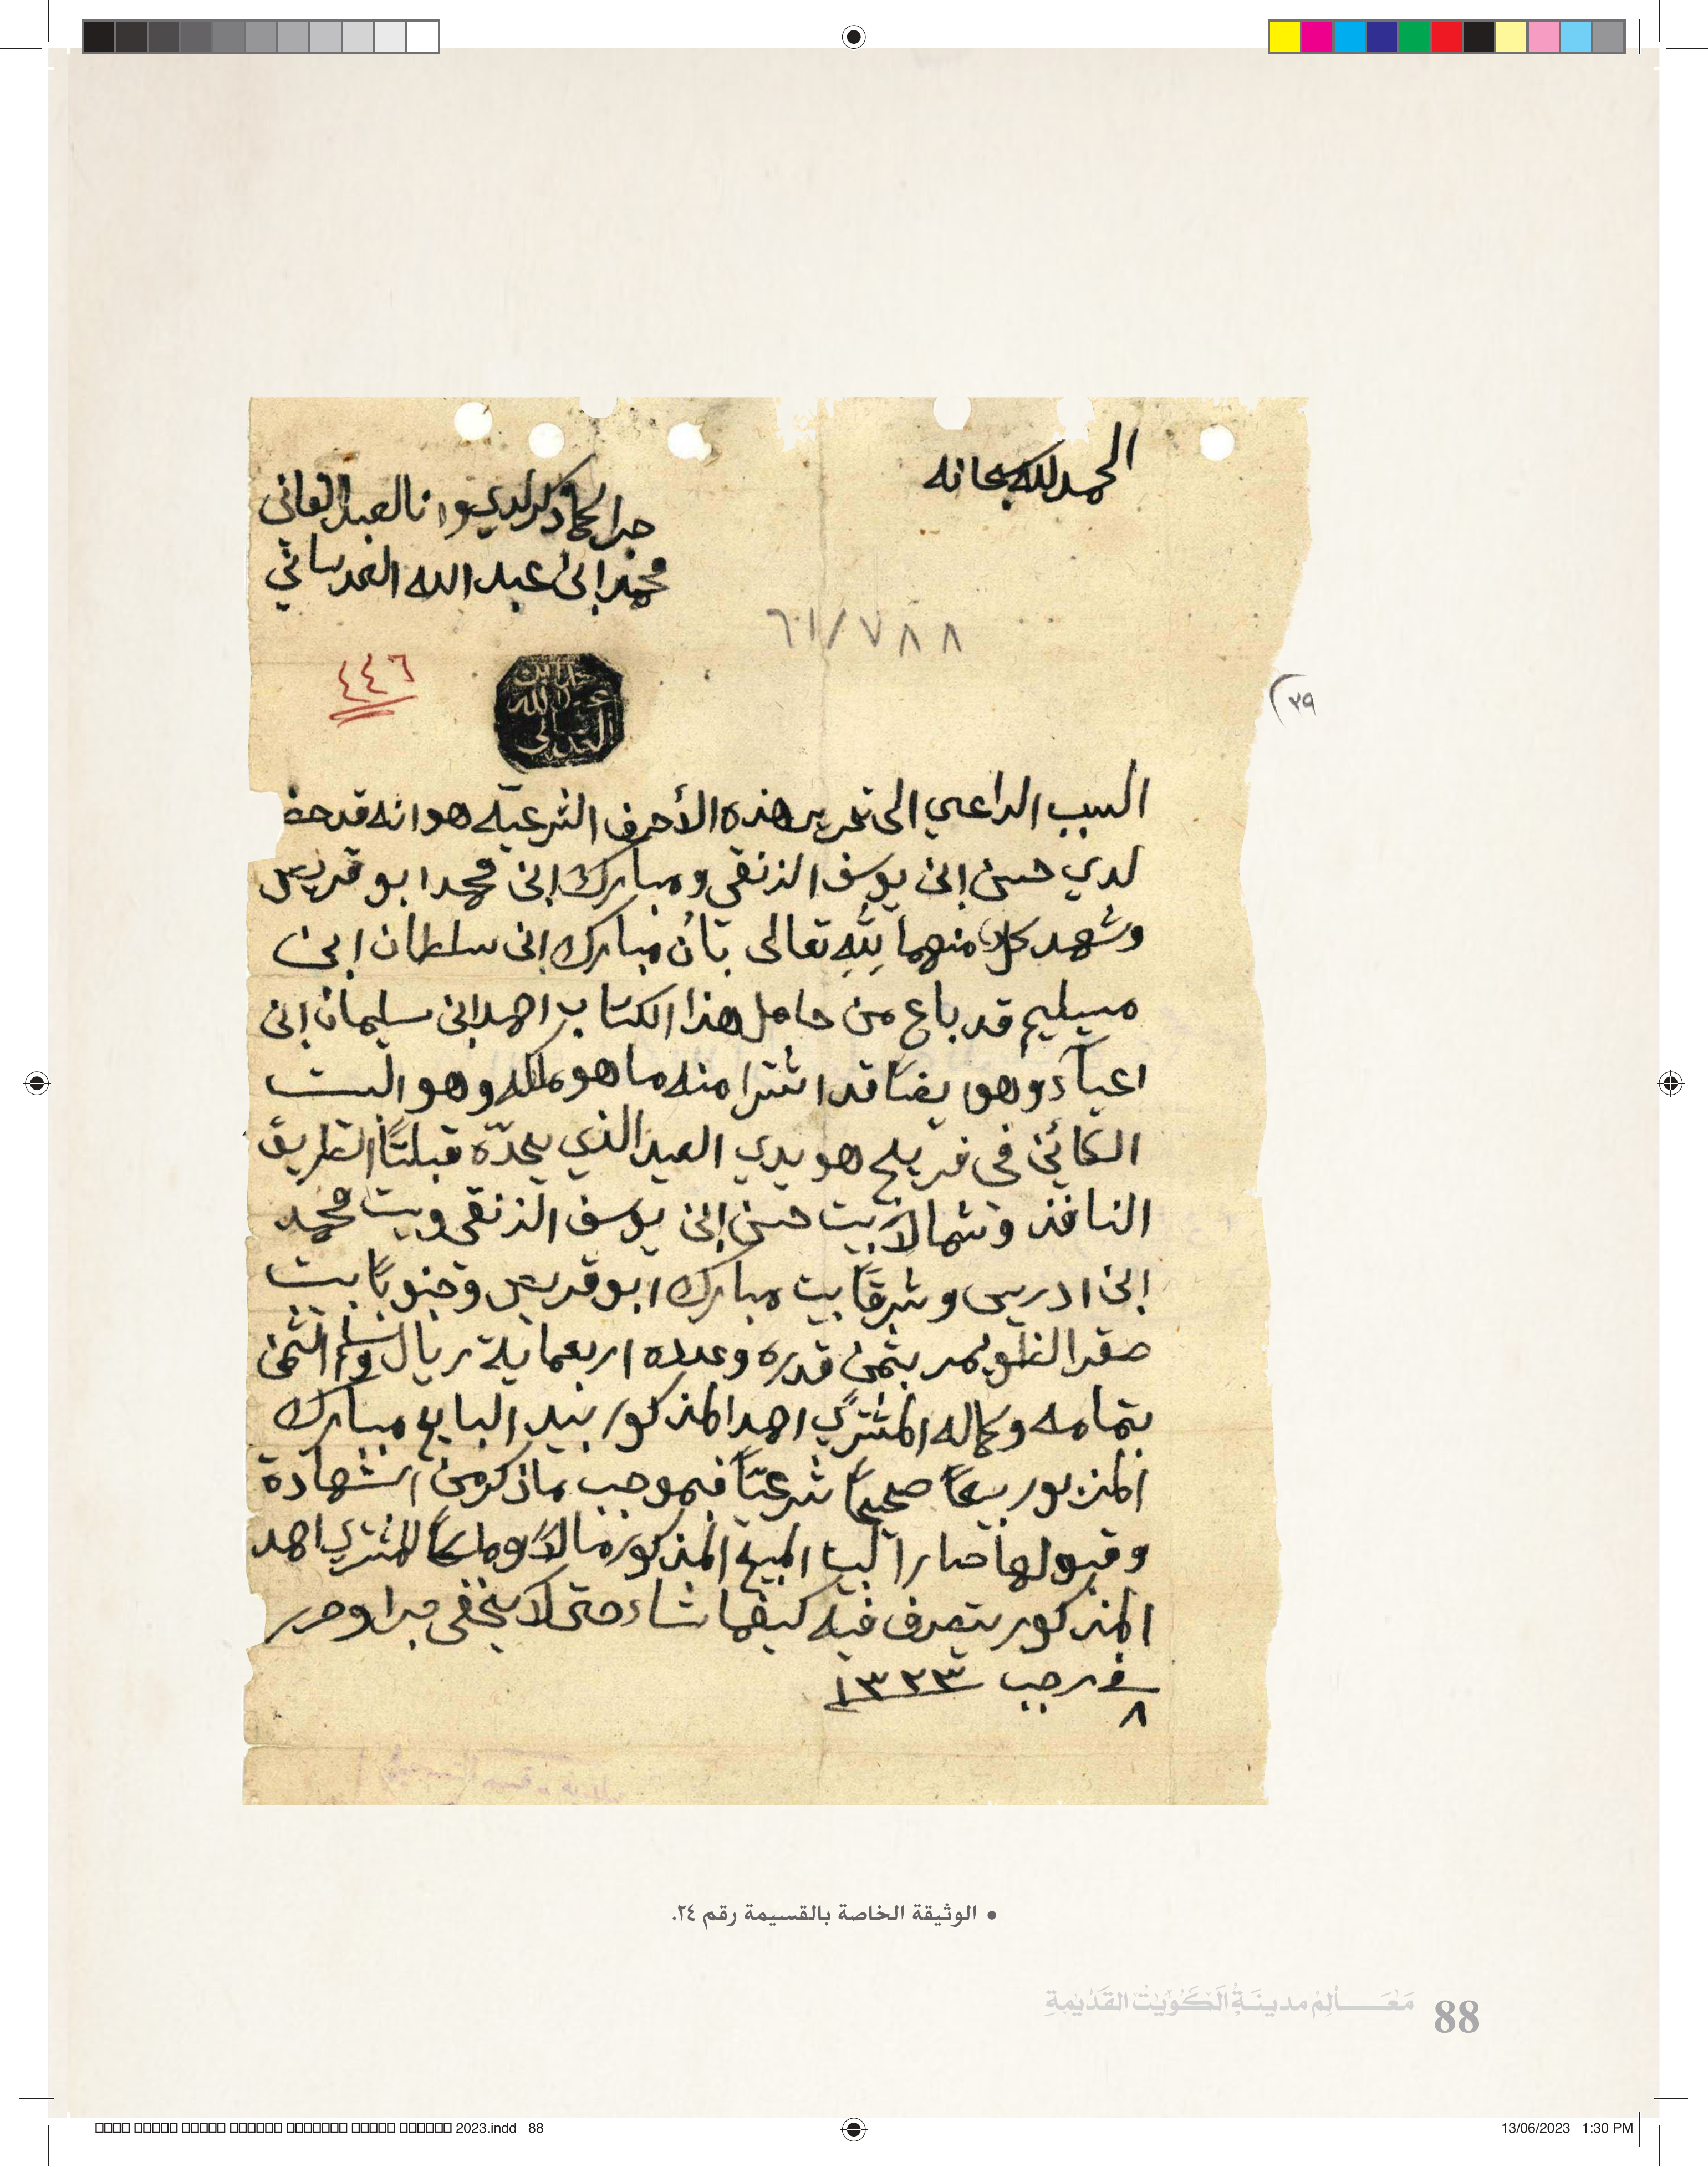 الحمد لله سبحانه
جرا كما ذكر لدي وانا العبد الفاني
محمد ابن عبد الله العدساني
٦١/٧٨٨
٤٤٦
٣٩
محمد ابن
عبد الله
العدساني
السبب الداعي الى تحرير هذه الأحرف الشرعيّه هو انه قد حضر
لدي حسن ابن يوسف الزنقي ومبارك ابن محمد ابو قريص
وشهد كلٌ منهما لله تعالى بأن مبارك ابن سلطان ابن
مسيليم قد باع من حامل هذا الكتاب احمد ابن سليمان ابن
اعياء وهو ايضا قد اشترا منه ما هو ملكه وهو البيت
الكائن في فريج هويدي العبد الذي يحدّه قبلتًا الطريق
النافذ وشمالاً بيت حسن ابن يوسف الزنقي وبيت محمد
ابن ادريس وشرقًا بيت مبارك ابو قريص وجنوبًا بيت
صقر الظويهر بثمن قدره وعدده اربعماية ريال وسلم الثمن
بتمامه وكماله المشتري احمد المذكور بيد البايع مبارك
المزبور بيعًا صحيحًا شرعيًا فبموجب ما ذكر من الشهادة
وقبولها صار البيت المبيع المذكور مالاً وملكًا للمشتري احمد
المذكور يتصرف فيه كيفما شاء حتى لا يخفى جرا وحرر
في ٨ رجب ١٣٢٣
• الوثيقة الخاصة بالقسيمة رقم ٢٤.
مَعَالِمُ مدينَةِ الكُوَيْت القَدِيمَةِ 88
2023.indd 88
13/06/2023 1:30 PM